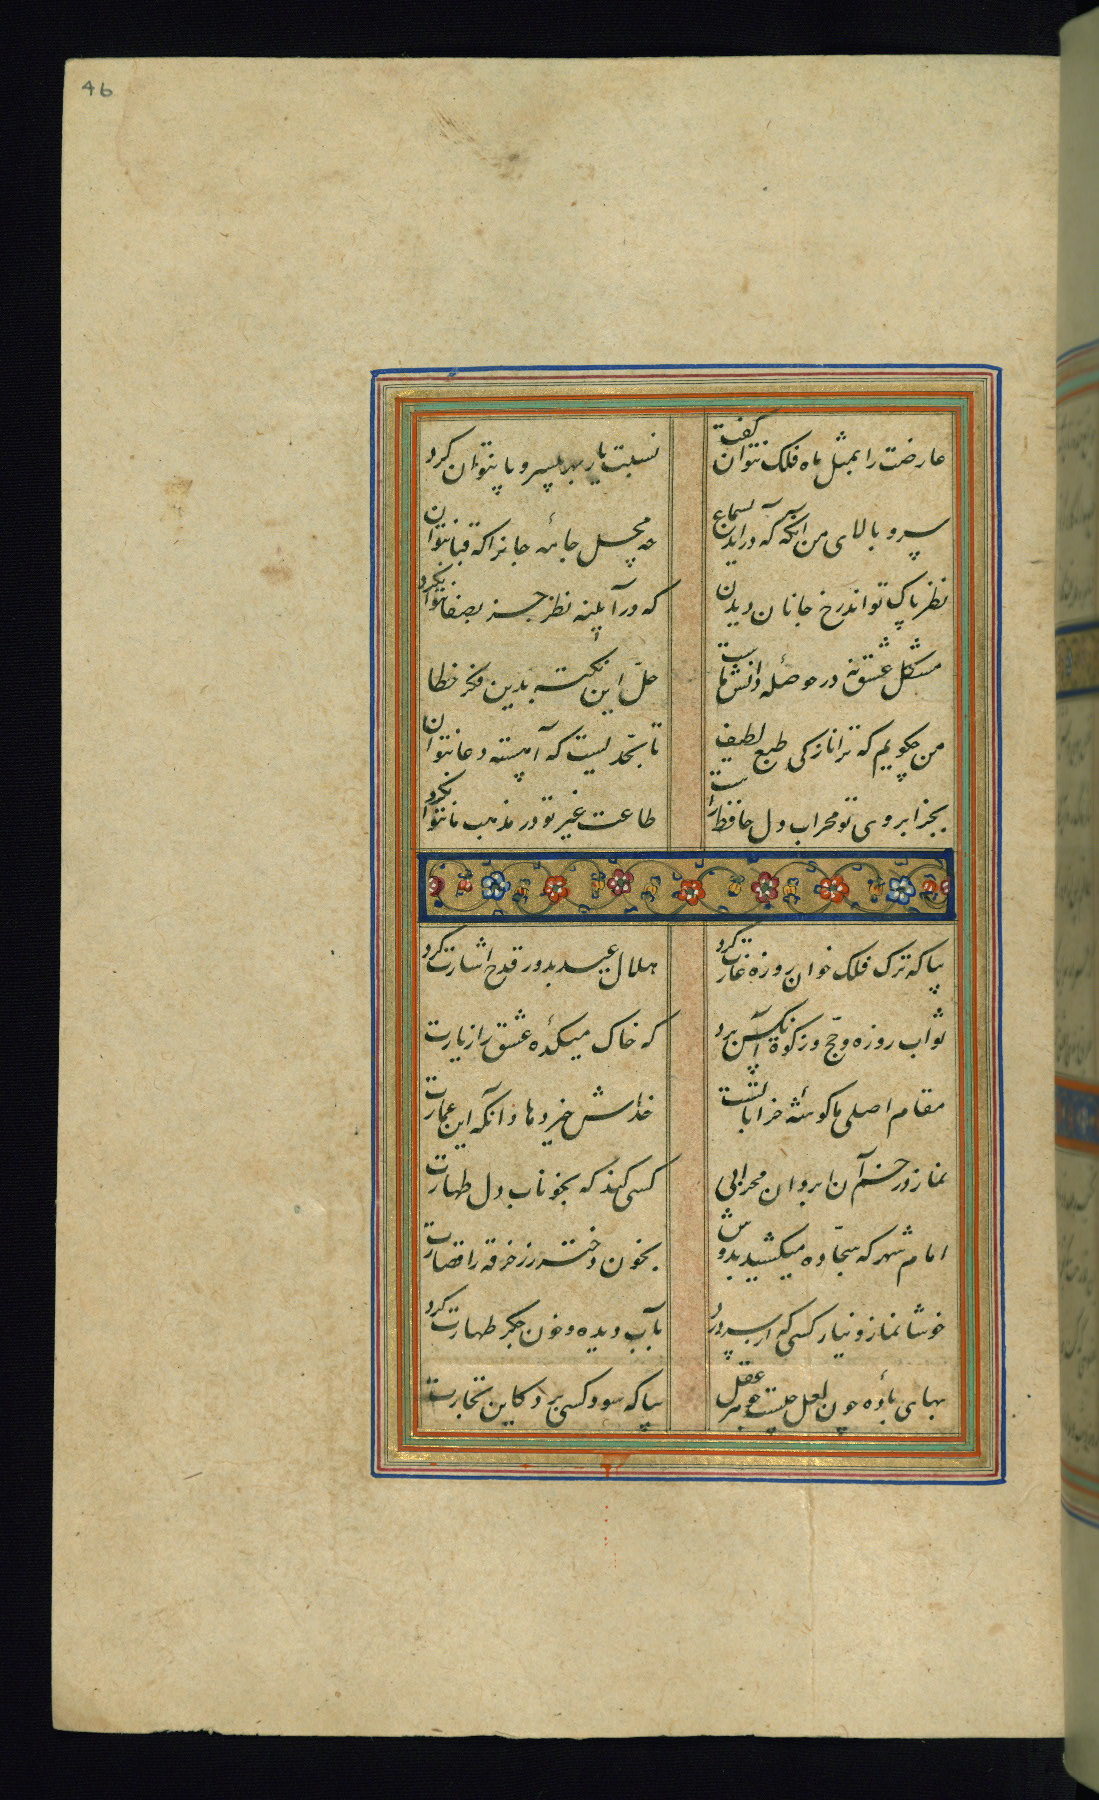 46
عارضت را بمثل ماه فلک نتوان گفت
نسبت یار بهر بیسر و پا نتوان کرد
سرو بالای من آنگه که در آید بسماع
چه محل جامه جانرا که قبا نتوان
نظر پاک تواند رخ جانان دیدن
که در آیینه نظر جز بصفا نتوان کرد
مشکل عشق نه در حوصله دانش ماست
حل این نکته بدین فکر خطا
من چگویم که ترا نازکی طبع لطیف
تا بحدیست که آهسته دعا نتوان
بجز ابروی تو محراب دل حافظ نیست
طاعت غیر تو در مذهب ما نتوان کرد
بیا که ترک فلک خوان روزه غارت کرد
هلال عید بدور قدح اشارت کرد
ثواب روزه و حج و زکوة آنکس برد
که خاک میکده عشق را زیارت
مقام اصلی ما گوشه خراباتست
خداش خیر دهاد آنکه این عمارت
نماز در خم آن ابروان محرابی
کسی کند که بخوناب دل طهارت
امام شهر که سجاده میکشید بدوش
بخون دختر رز خرقه را قصارت
خوشا نماز و نیاز کسی که از سر درد
بآب دیده و خون جگر طهارت کرد
بهای باده چون لعل چیست جوهر عقل
بیا که سود کسی برد کاین تجارت